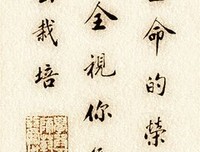 命的榮
全視你
栽培